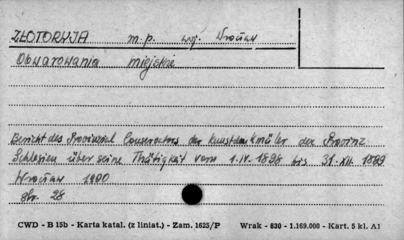 ZŁOTORYJA m.p. woj. Wrocław
Obwarowania miejskie
Bericht des Provinzial Conservators der Kunstdenkmäler der Provinz
Schlesien über seine Thätigkeit vom 1.IV.1896 bis 31.XII.1899
Wrocław 1900
str. 28
CWD - B 15b - Karta katal. (z liniat.) - Zam. 1625/P Wrak - 830 - 1.169.000 - Kart. 5 kl. A1